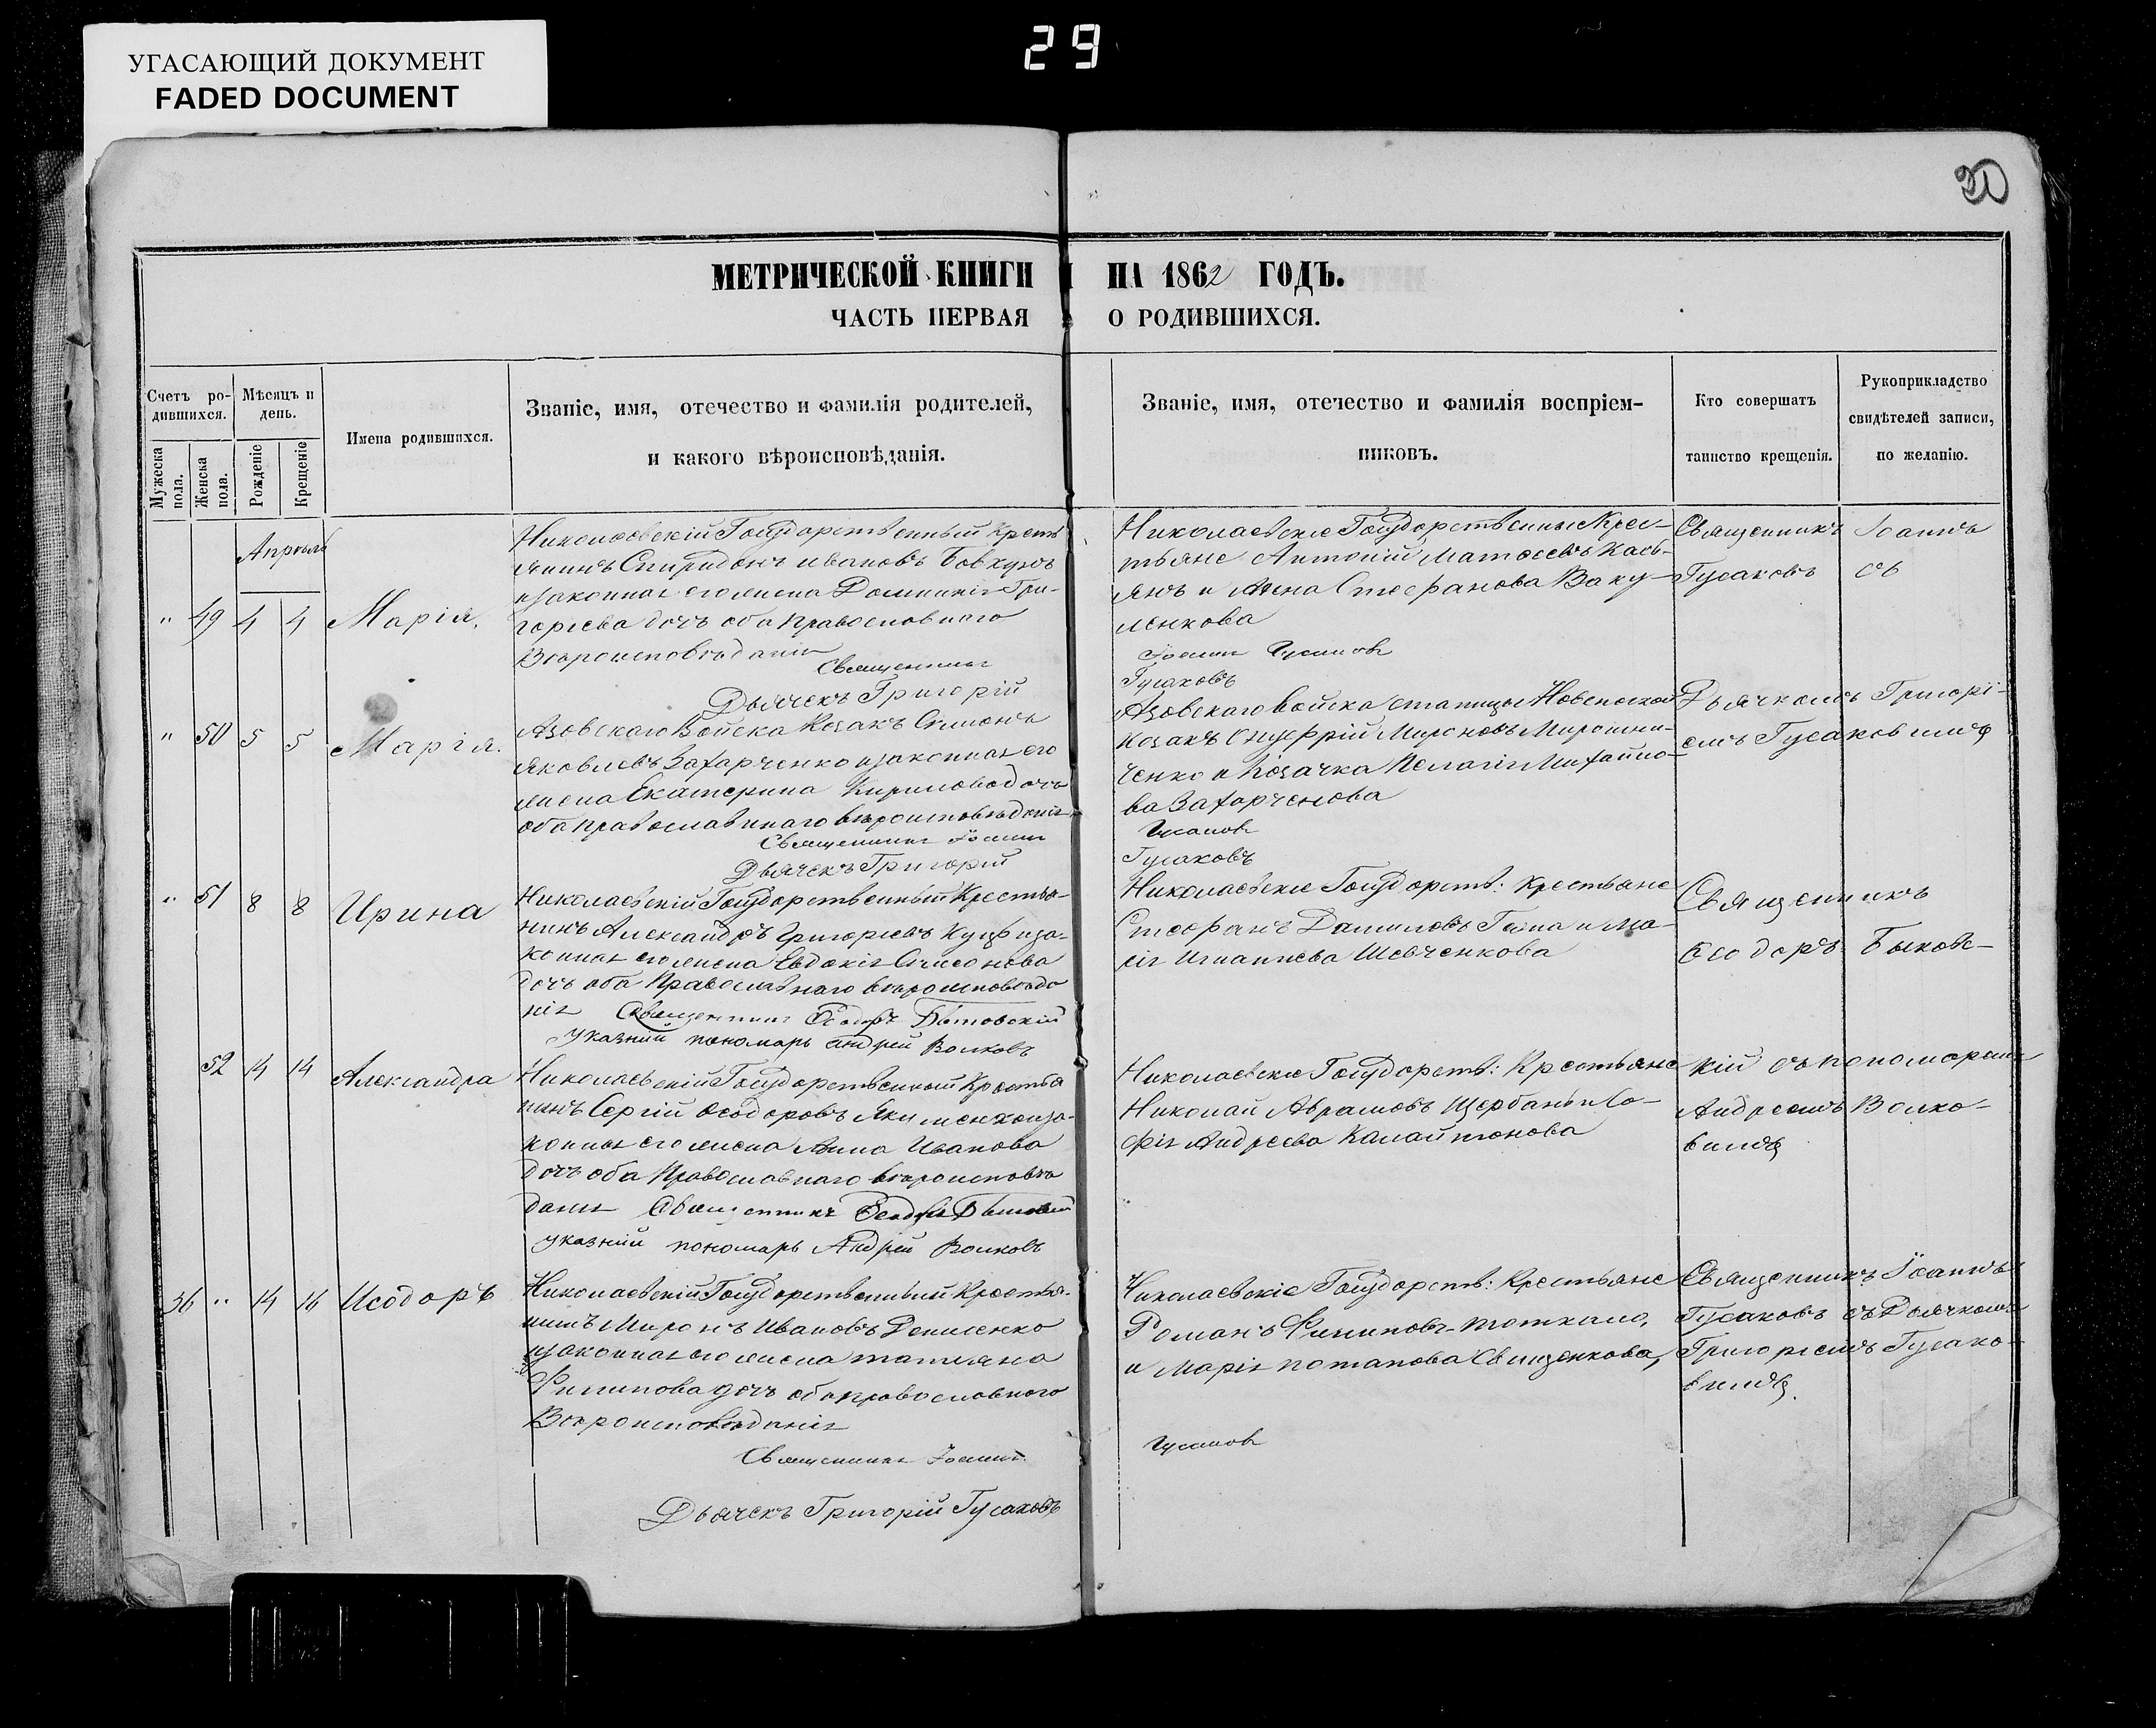 УГАСАЮЩИЙ ДОКУМЕНТ
FADED DOCUMENT
29
30
МЕТРИЧЕСКОЙ КНИГИ НА 1862 ГОДЪ.
ЧАСТЬ ПЕРВАЯ О РОДИВШИХСЯ.
Счетъ ро-
дившихся.
Мужеска пола.
Женска пола.
Мѣсяцъ и
день.
Рожденіе
Крещеніе
Имена родившихся.
Званіе, имя, отечество и фамилія родителей,
и какого вѣроисповѣданія.
Званіе, имя, отечество и фамилія воспріем-
никовъ.
Кто совершатъ
таинство крещенія.
Рукоприкладство
свидѣтелей записи,
по желанію.
Апрѣль
" 49 4 4 Марія,
Николаевскій Государственный Кресть
янинъ Спиридонъ Ивановъ
изаконная его жена Домникія Гри-
горіева дочъ оба Православнаго
Вѣроисповѣданія
Священникъ
Дьячекъ Григорій
Николаевскіе Государственные Крес-
тьяне Антоній Матѳеевъ Кась-
янъ и Анна Стефанова Ваку-
ленкова
Іоаннъ Гусаковъ
Гусаковъ
Священникъ Іоаннъ
Гусаковъ съ
" 50 5 5 Марія.
Азовскаго Войска Козакъ Симонъ
Яковлевъ Захарченко изаконная его
жена Екатерина Кирилова дочъ
оба православнаго вѣроисповѣданія
Священникъ Іоаннъ
Дьячекъ Григорій
Азовскаго Войска станицы
Козакъ Онуфрій Мироновъ Мирошни-
ченко и Козачка Пелагія Михайло-
ва Захарченкова
Гусаковъ
Гусаковъ
Дьячкомъ Григорі-
емъ Гусаковимъ
" 51 8 8 Ирина
Николаевскій Государственный Крестья-
нинъ Александръ Григорьевъ иза-
конная его жена Евдокія Симонова
дочъ оба Православнаго вѣроисповѣда
нія Священникъ Ѳеодоръ Быковскій
Указный пономарь Андрей Волковъ
Николаевскіе Государств: Крестьяне
Стефанъ Даниловъ и Ма-
рія Игнатиева Шевченкова
Священникъ
Ѳеодоръ Быковс-
52 14 14 Александра
Николаевскій Государственный Крестья
нинъ Сергій Ѳеодоровъ Якименко иза-
конная его жена Анна Иванова
дочъ оба Православнаго вѣроисповѣ
данія Священникъ Ѳеодоръ Быковскій
Указный пономарь Андрей Волковъ
Николаевскіе Государств: Крестьяне
Николай Аврамовъ Щербань и Со-
фія Андреева
кій съ пономаремъ
Андреемъ Волко-
вимъ
36 " 14 16 Исодоръ
Николаевскій Государственный Крестья-
нинъ Миронъ Ивановъ Денисенко
изаконная его жена татияна
Филипова дочъ оба православного
Вѣроисповѣданія
Священникъ Іоаннъ
Дьячекъ Григорій Гусаковъ
Николаевскіе Государств: Крестьяне
Романъ Филиповъ
и Марія потапова
Гусаковъ
Священникъ Іоаннъ
Гусаковъ съ Дьячкомъ
Григоріемъ Гусако-
вимъ.